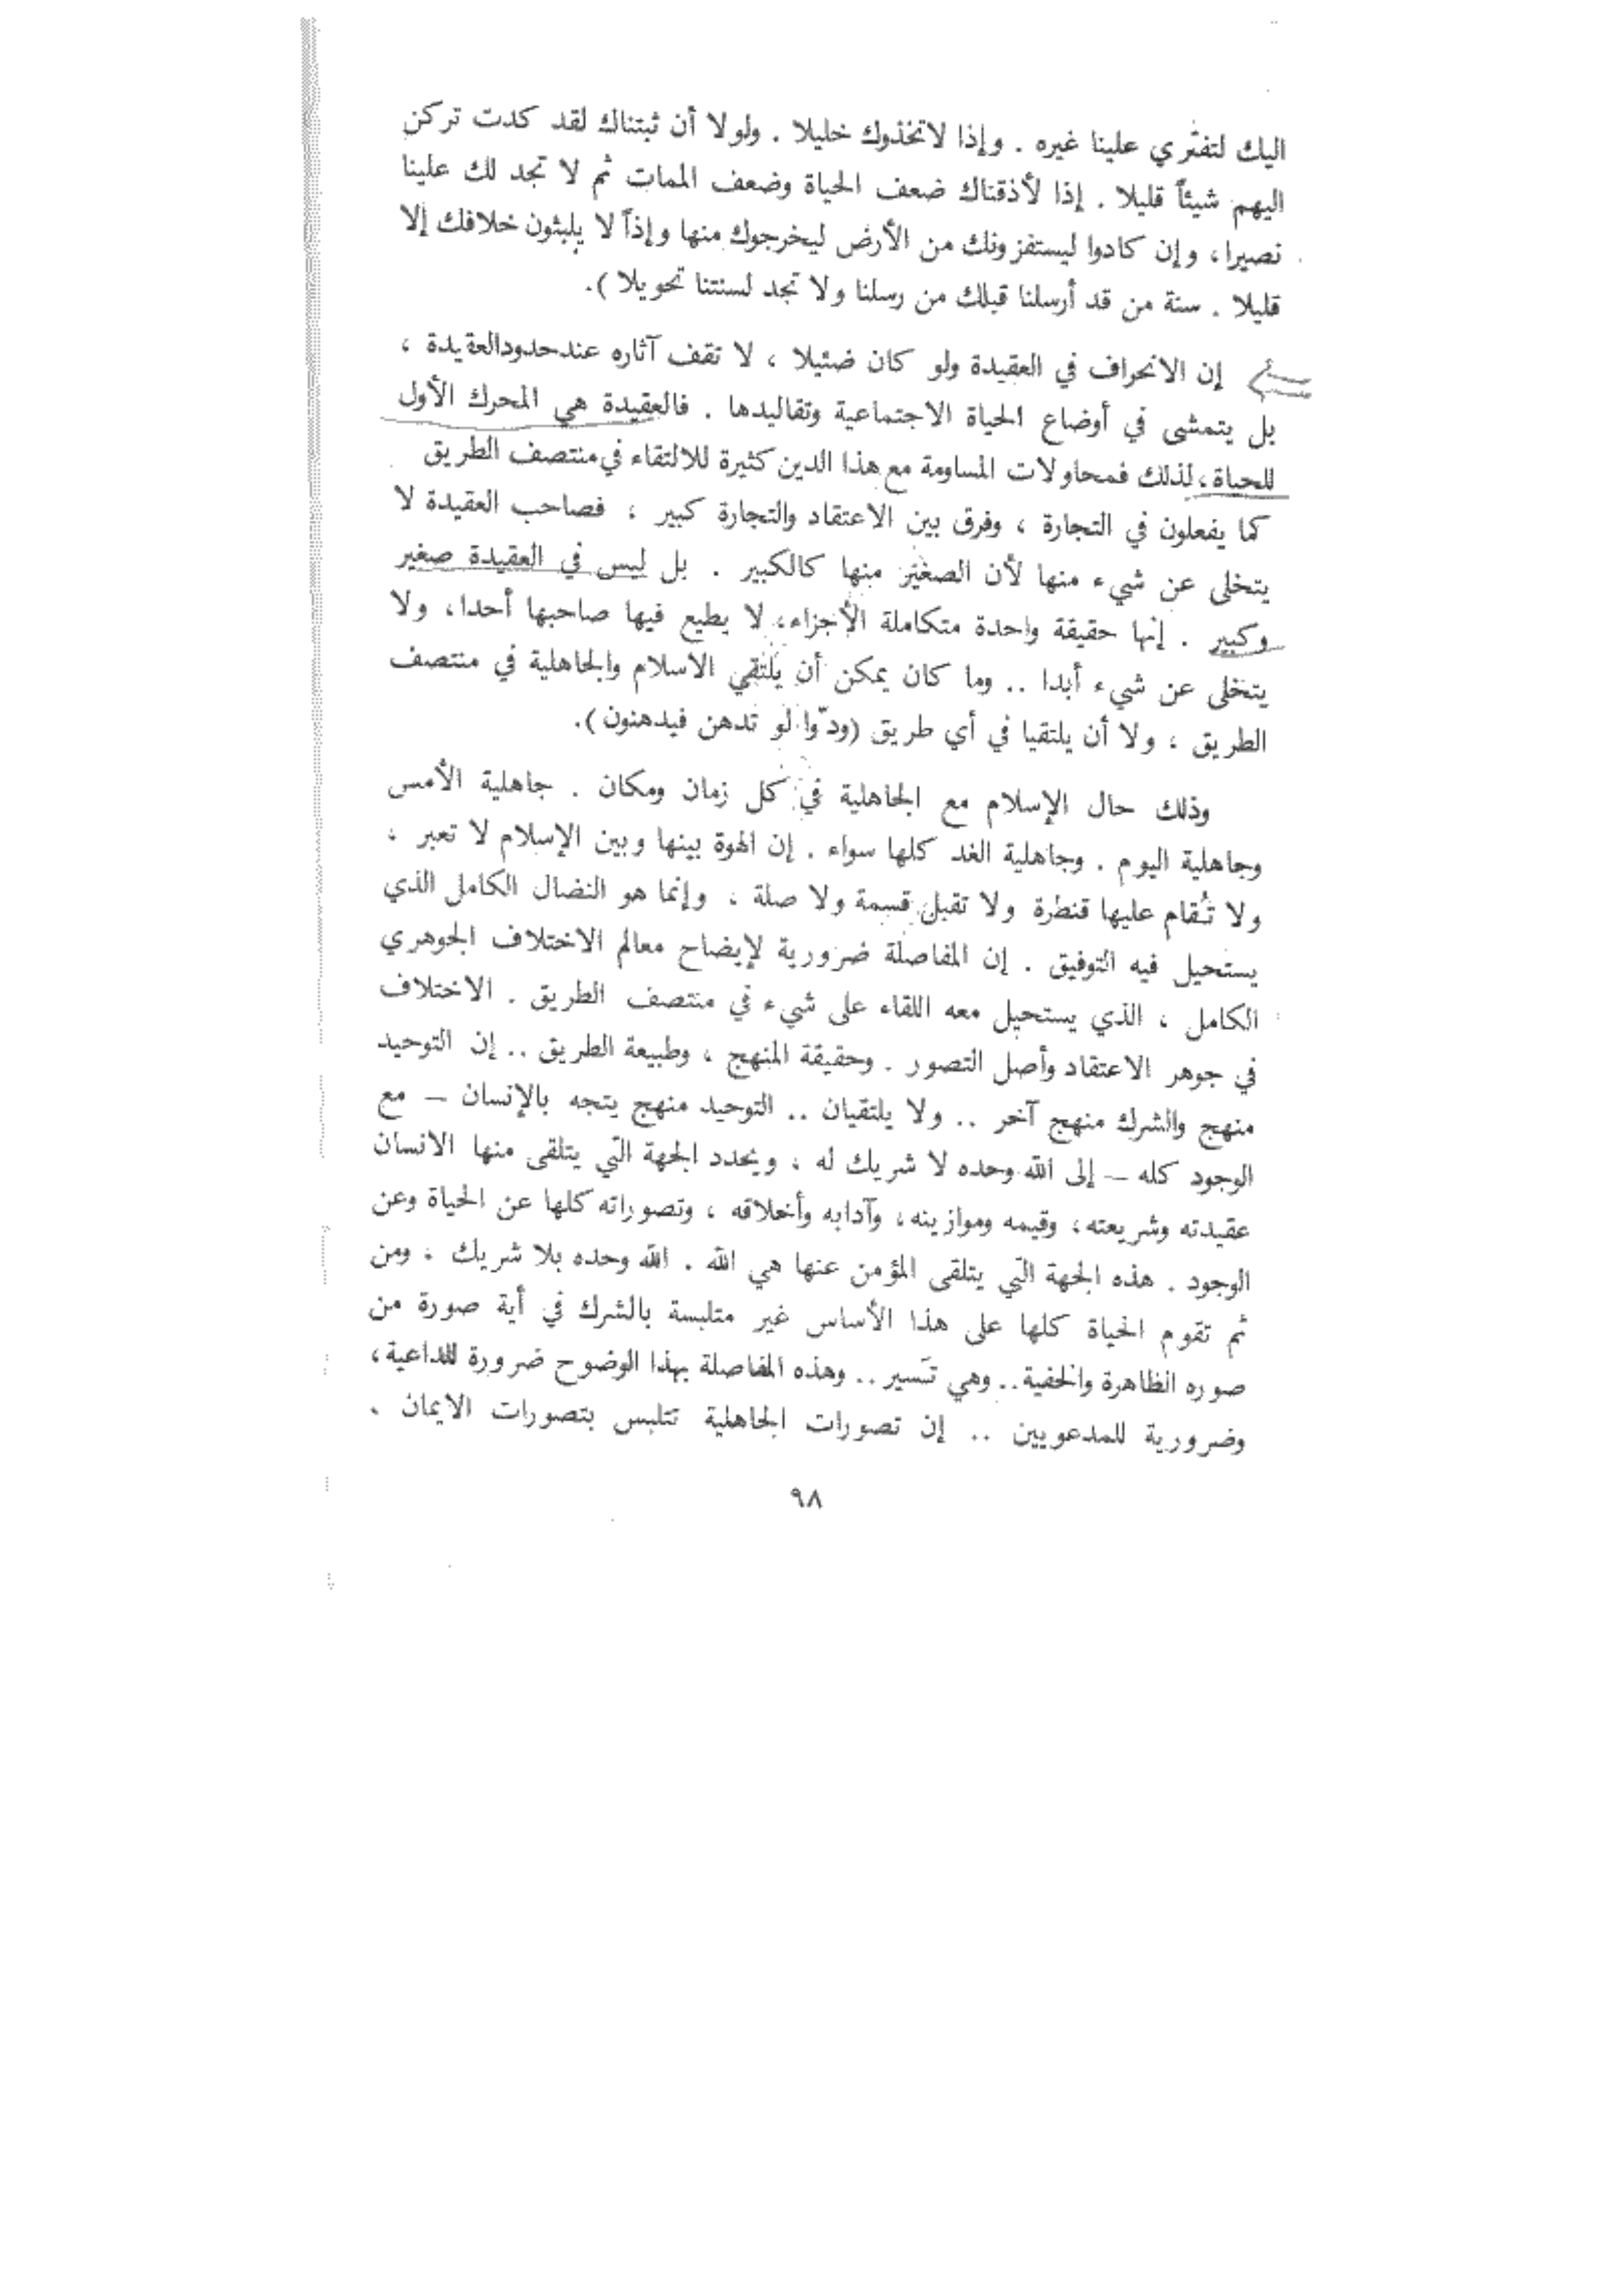 اليك لتفتري علينا غيره . وإذا لاتخذوك خليلا . ولولا أن ثبتناك لقد كدت تركن
اليهم شيئاً قليلا . إذا لأذقناك ضعف الحياة وضعف الممات ثم لا تجد لك علينا
نصيرا ، وإن كادوا ليستفزونك من الأرض ليخرجوك منها وإذاً لا يلبثون خلافك إلا
قليلا . سنة من قد أرسلنا قبلك من رسلنا ولا تجد لسنتنا تحويلا ).
إن الانحراف في العقيدة ولو كان ضئيلا ، لا تقف آثاره عندحدودالعقيدة ،
بل يتمشى في أوضاع الحياة الاجتماعية وتقاليدها . فالعقيدة هي المحرك الأول
للحياة ، لذلك فمحاولات المساومة مع هذا الدين كثيرة للالتقاء في منتصف الطريق
كما يفعلون في التجارة ، وفرق بين الاعتقاد والتجارة كبير ، فصاحب العقيدة لا
يتخلى عن شيء منها لأن الصغير منها كالكبير . بل ليس في العقيدة صغير
وكبير . إنها حقيقة واحدة متكاملة الأجزاء، لا يطيع فيها صاحبها أحدا، ولا
يتخلى عن شيء أبدا .. وما كان يمكن أن يلتقي الاسلام والجاهلية في منتصف
الطريق ، ولا أن يلتقيا في أي طريق (ودّوا لو تدهن فيدهنون).
وذلك حال الإسلام مع الجاهلية في كل زمان ومكان . جاهلية الأمس
وجاهلية اليوم . وجاهلية الغد كلها سواء . إن الهوة بينها وبين الإسلام لا تعبر ،
ولا تُقام عليها قنطرة ولا تقبل قسمة ولا صلة ، وإنما هو النضال الكامل الذي
يستحيل فيه التوفيق . إن المفاصلة ضرورية لإيضاح معالم الاختلاف الجوهري
الكامل ، الذي يستحيل معه اللقاء على شيء في منتصف الطريق . الاختلاف
في جوهر الاعتقاد وأصل التصور . وحقيقة المنهج ، وطبيعة الطريق .. إن التوحيد
منهج والشرك منهج آخر .. ولا يلتقيان .. التوحيد منهج يتجه بالإنسان – مع
الوجود كله – إلى الله وحده لا شريك له ، ويحدد الجهة التي يتلقى منها الانسان
عقيدته وشريعته، وقيمه وموازينه، وآدابه وأخلاقه ، وتصوراته كلها عن الحياة وعن
الوجود . هذه الجهة التي يتلقى المؤمن عنها هي الله . الله وحده بلا شريك ، ومن
ثم تقوم الحياة كلها على هذا الأساس غير متلبسة بالشرك في أية صورة من
صوره الظاهرة والخفية .. وهي تَسير .. وهذه المفاصلة بهذا الوضوح ضرورة للداعية،
وضرورية للمدعويين .. إن تصورات الجاهلية تتلبس بتصورات الايمان .
٩٨